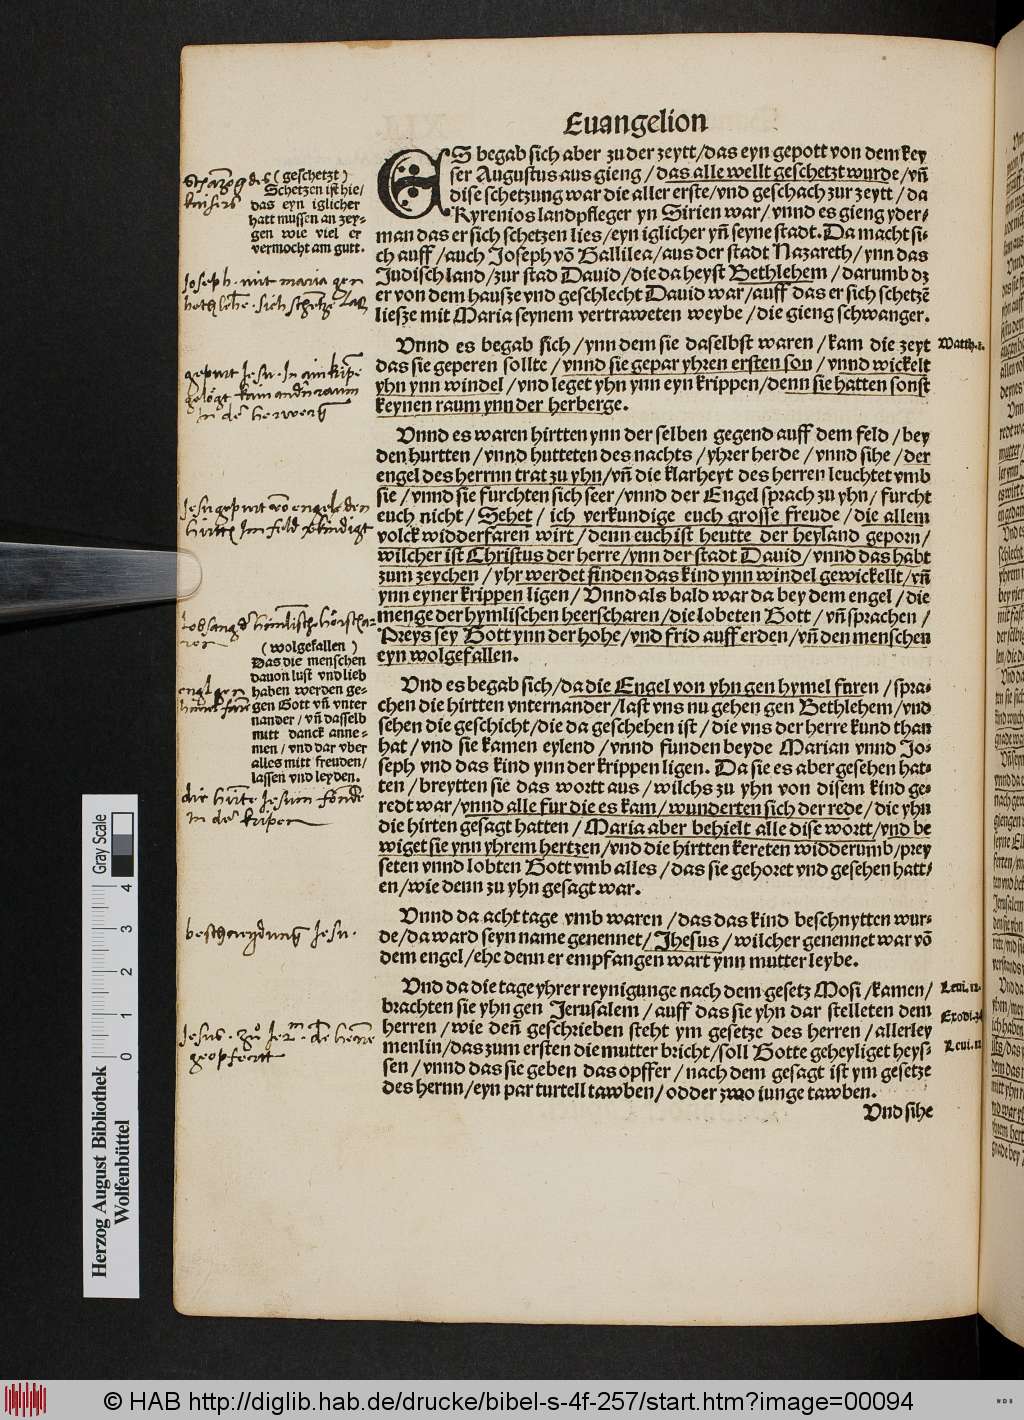 Euangelion
ES begab sich aber zu der zeytt/das eyn gepott von dem key
ser Augustus aus gieng/das alle wellt geschetzt wurde/vñ
dise schetzung war die aller erste/vnd geschach zur zeytt/da
Kyrenios landpfleger yn Sirien war/vnnd es gieng yder-
man das er sich schetzen lies/eyn iglicher yñ seyne stadt. Da macht si-
ch auff/auch Joseph võ Gallilea/aus der stadt Nazareth/ynn das
Judisch land/zur stad Dauid/die da heyst Bethlehem/darumb dz
er von dem hausze vnd geschlecht Dauid war/auff das er sich schetzẽ
liesze mit Maria seynem vertraweten weybe/die gieng schwanger.
Vnnd es begab sich/ynn dem sie daselbst waren/kam die zeyt
das sie geperen sollte/vnnd sie gepar yhren ersten son/vnnd wickelt
yhn ynn windel/vnd leget yhn ynn eyn krippen/denn sie hatten sonst
keynen raum ynn der herberge.
Vnnd es waren hirtten ynn der selben gegend auff dem feld/bey
den hurtten/vnnd hutteten des nachts/yhrer herde/vnnd sihe/der
engel des herrnn trat zu yhn/vñ die klarheyt des herren leuchtet vmb
sie/vnnd sie furchten sich seer/vnnd der Engel sprach zu yhn/furcht
euch nicht/Sehet/ich verkundige euch grosse freude/die allem
volck widderfaren wirt/denn euch ist heutte der heyland geporn/
wilcher ist Christus der herre/ynn der stadt Dauid/vnnd das habt
zum zeychen/yhr werdet finden das kind ynn windel gewickellt/vñ
ynn eyner krippen ligen/Vnnd als bald war da bey dem engel/die
menge der hymlischen heerscharen/die lobeten Gott/vñ sprachen/
Preys sey Gott ynn der hohe/vnd frid auff erden/vñ den menschen
eyn wolgefallen.
Vnd es begab sich/da die Engel von yhn gen hymel furen/spra-
chen die hirtten vnternander/last vns nu gehen gen Bethlehem/vnd
sehen die geschicht/die da geschehen ist/die vns der herre kund than
hat/vnd sie kamen eylend/vnnd funden beyde Marian vnnd Jo-
seph vnd das kind ynn der krippen ligen. Da sie es aber gesehen hat-
ten/breytten sie das wortt aus/wilchs zu yhn von disem kind ge-
redt war/vnnd alle fur die es kam/wunderten sich der rede/die yhn
die hirten gesagt hatten/Maria aber behielt alle dise wortt/vnd be
wiget sie ynn yhrem hertzen/vnd die hirtten kereten widderumb/prey
seten vnnd lobten Gott vmb alles/das sie gehoret vnd gesehen hatt-
en/wie denn zu yhn gesagt war.
Vnnd da acht tage vmb waren/das das kind beschnytten wur-
de/da ward seyn name genennet/Jhesus/wilcher genennet war võ
dem engel/ehe denn er empfangen wart ynn mutter leybe.
Vnd da die tage yhrer reynigunge nach dem gesetz Mosi/kamen/
brachten sie yhn gen Jerusalem/auff das sie yhn dar stelleten dem
herren/wie deñ geschrieben steht ym gesetze des herren/allerley
menlin/das zum ersten die mutter bricht/soll Gotte geheyliget heys-
sen/vnnd das sie geben das opffer/nach dem gesagt ist ym gesetze
des hernn/eyn par turtell tawben/odder zwo iunge tawben.
Vnd sihe
(geschetzt)
Schetzen ist hie/
das eyn iglicher
hatt mussen an zey-
gen wie viel er
vermocht am gutt.
Joseph mit maria gen
gepurt Jesu. In ain kripẽ
(wolgefallen)
Das die menschen
dauon lust vnd lieb
haben werden ge-
gen Gott vñ vnter
nander/vñ dasselb
mitt danck anne-
men/vnd dar vber
alles mitt freuden/
lassen vnd leyden.
in der kripen
beschneydung Jesu.
Matth.1.
Leui.12.
Leui.12
Gray Scale
4
3
2
1
0
Herzog August Bibliothek
Wolfenbüttel
© HAB http://diglib.hab.de/drucke/bibel-s-4f-257/start.htm?image=00094